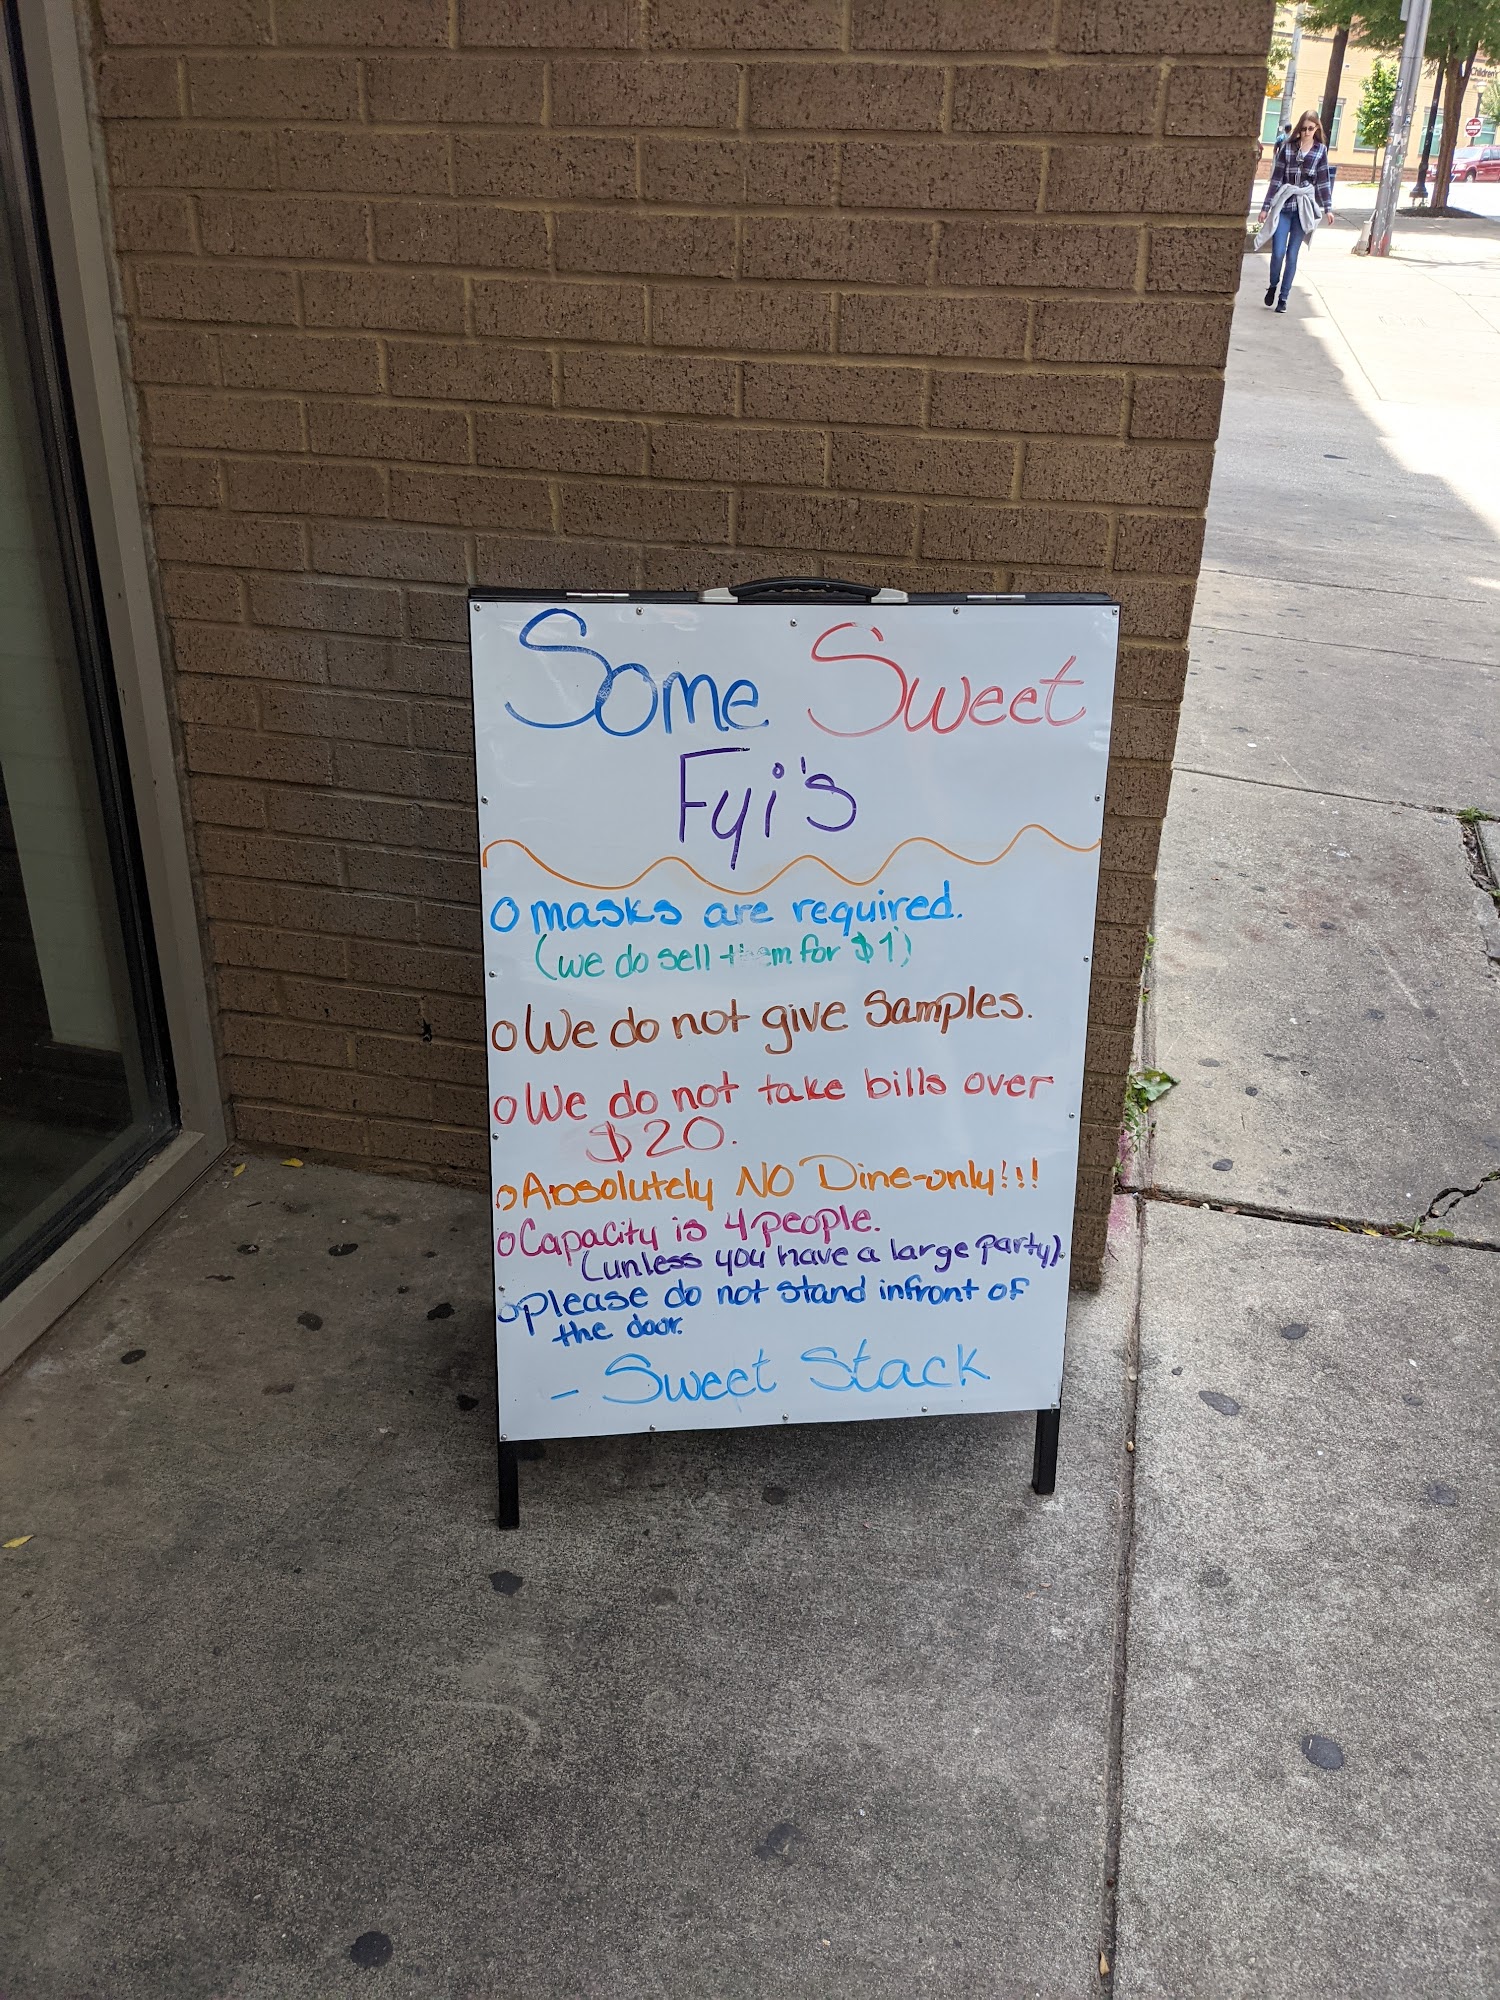 Some Sweet
Fyi's
O masks are required.
(we do sell them for $1)
O We do not give Samples.
O We do not take bills over
$20.
O Absolutely NO Dine-only!!!
O Capacity is 4 people.
(unless you have a large party).
O please do not stand infront of
the door.
- Sweet Stack
Children's